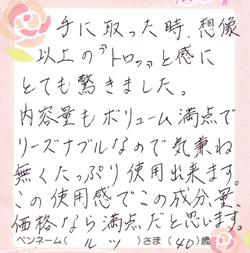 手に取った時、想像
以上の〝トロッ〟と感に
とても驚きました。
内容量もボリューム満点で
リーズナブルなので気兼ね
無くたっぷり使用出来ます。
この使用感でこの成分、量、
価格なら満点だと思います。
ペンネーム( ルッ )さま(40)歳